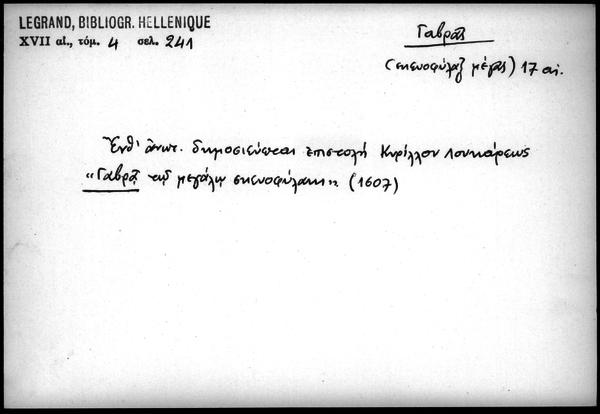 LEGRAND, BIBLIOGR. HELLENIQUE
XVII αἰ., τόμ. 4 σελ. 241
Γαβρᾶς
(σκευοφύλαξ μέγας) 17 αἰ.
Ἔνθ' ἀνωτ. δημοσιεύεται ἐπιστολὴ Κυρίλλου Λουκάρεως
"Γαβρᾷ τῷ μεγάλῳ σκευοφύλακι" (1607)